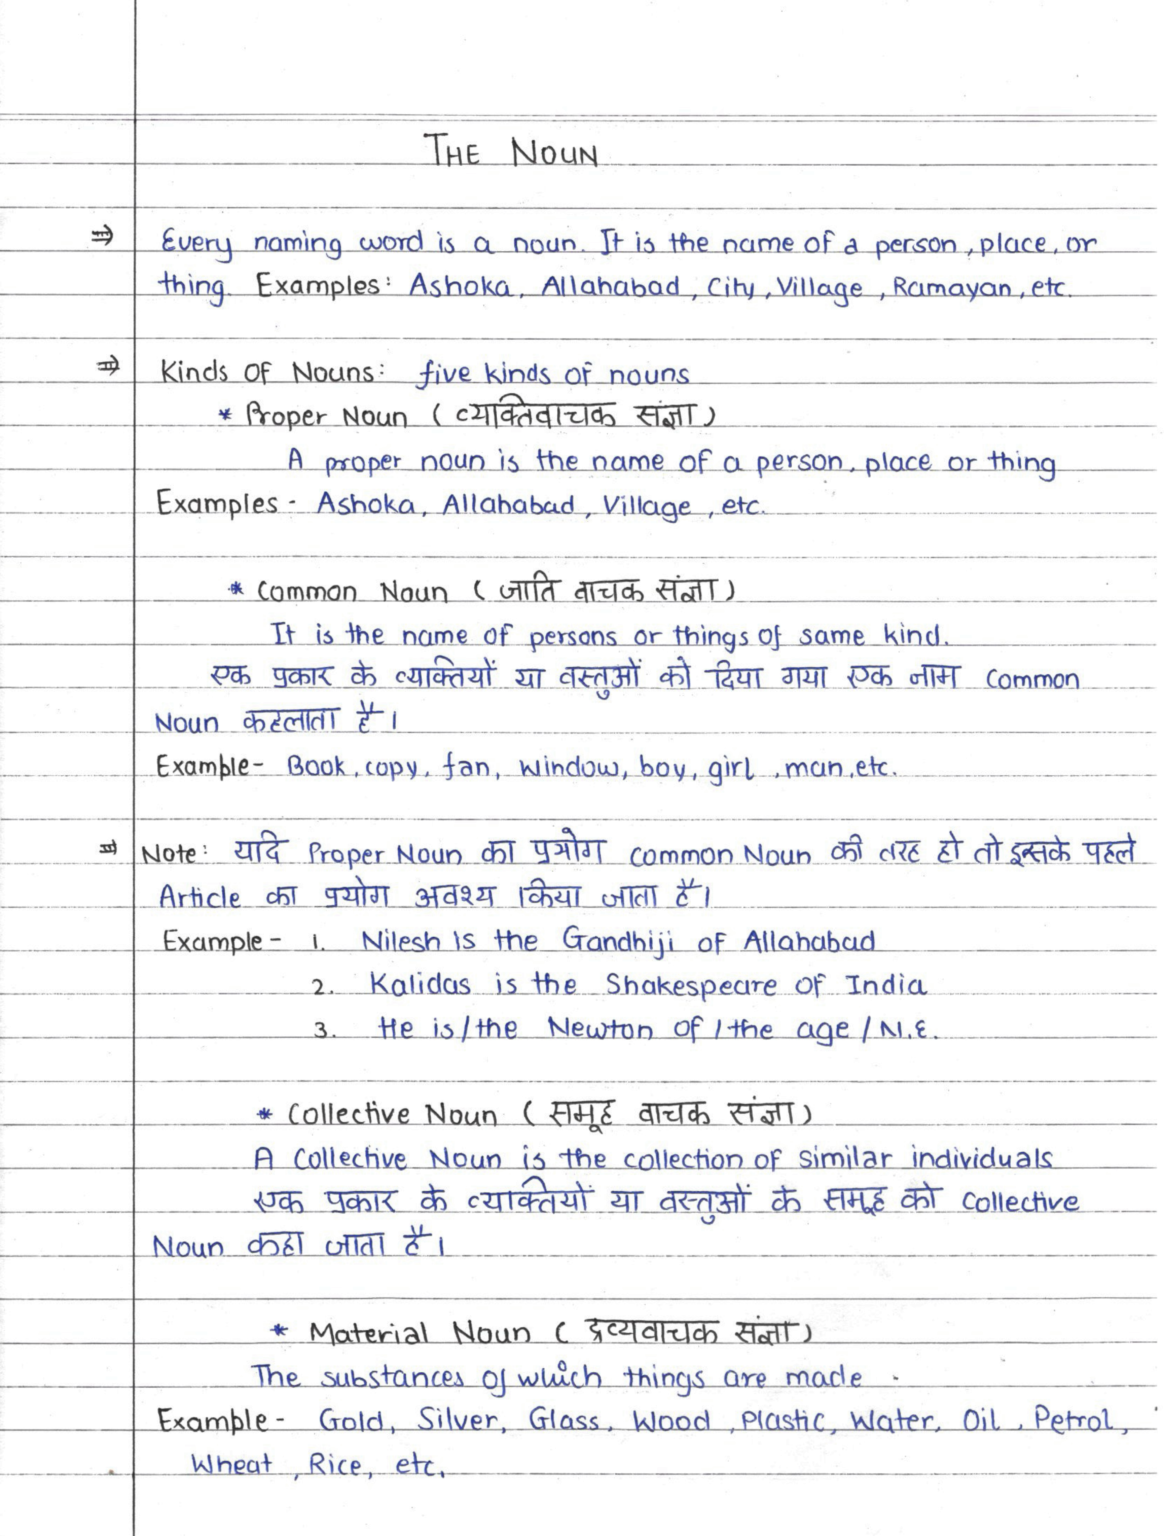 THE NOUN
⇒ Every naming word is a noun. It is the name of a person, place, or
thing. Examples: Ashoka, Allahabad, City, Village, Ramayan, etc.
⇒ Kinds Of Nouns: five kinds of nouns
* Proper Noun (व्यक्तिवाचक संज्ञा)
A proper noun is the name of a person, place or thing
Examples - Ashoka, Allahabad, Village, etc.
* Common Noun (जाति वाचक संज्ञा)
It is the name of persons or things of same kind.
एक प्रकार के व्यक्तियों या वस्तुओं को दिया गया एक नाम Common
Noun कहलाता है।
Example- Book, copy, fan, window, boy, girl, man, etc.
⇒ Note: यदि Proper Noun का प्रयोग common Noun की तरह हो तो इसके पहले
Article का प्रयोग अवश्य किया जाता है।
Example - 1. Nilesh is the Gandhiji of Allahabad
2. Kalidas is the Shakespeare of India
3. He is/the Newton of / the age / N.E.
* Collective Noun (समूह वाचक संज्ञा)
A Collective Noun is the collection of similar individuals
एक प्रकार के व्यक्तियों या वस्तुओं के समूह को Collective
Noun कहा जाता है।
* Material Noun (द्रव्यवाचक संज्ञा)
The substances of which things are made.
Example - Gold, Silver, Glass, Wood, Plastic, Water, Oil, Petrol,
Wheat, Rice, etc.